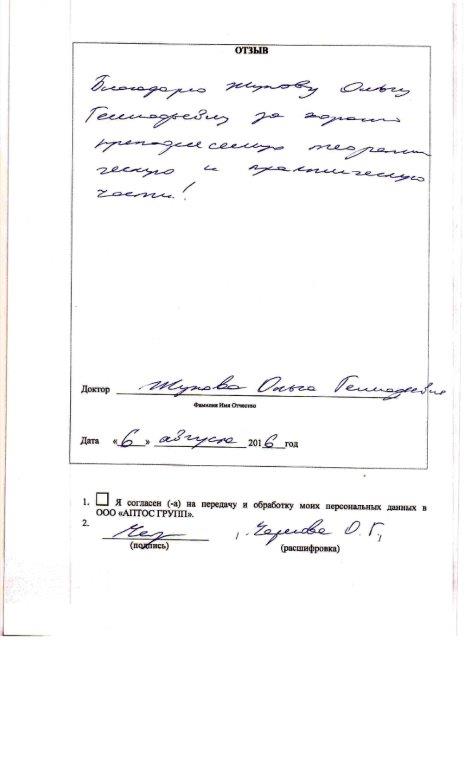 ОТЗЫВ
Благодарю Жукову Ольгу
Геннадьевну за хорошо
преподнесенную теорети
ческую и практическую
части!
Доктор Жукова Ольга Геннадьевна
Фамилия Имя Отчество
Дата «6» августа 2016 год
1. Я согласен (-а) на передачу и обработку моих персональных данных в
ООО «АПТОС ГРУПП».
2.
О. Г.
(подпись) (расшифровка)